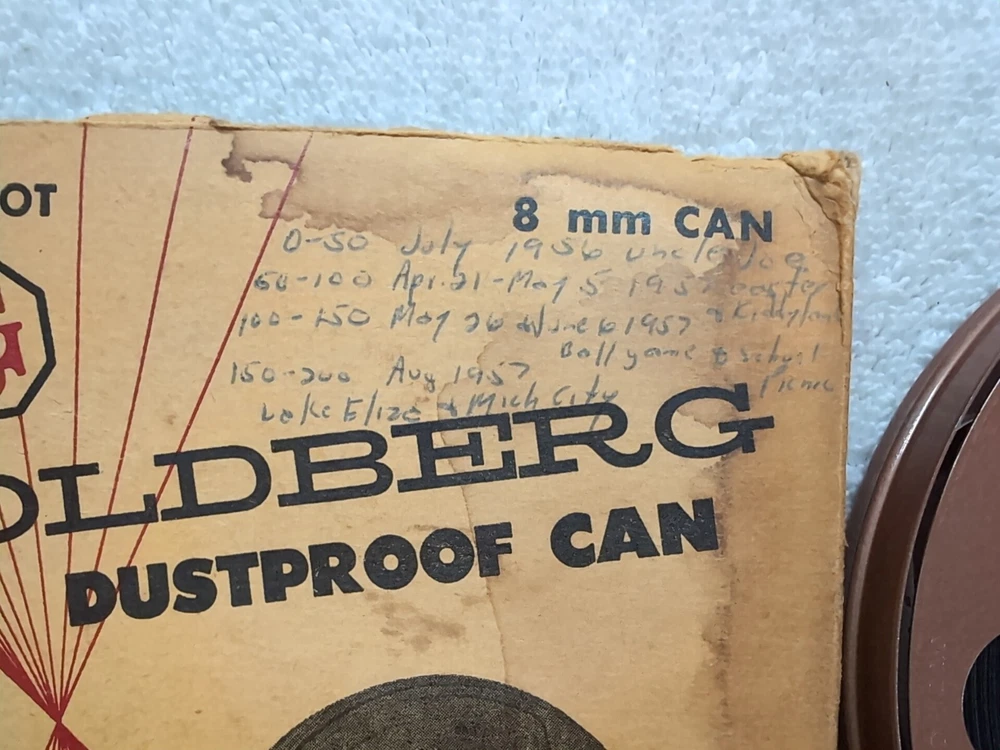 OT
8 mm CAN
0-50 July 1956 Uncle Joe
50-100 Apr. 21-May 5 1957 easter
100-150 May 26 & June 6 1957 & Kiddyland
Ballgame & school
150-200 Aug 1957 Picnic
Lake Eliza & Mich City
OLDBERG
DUSTPROOF CAN